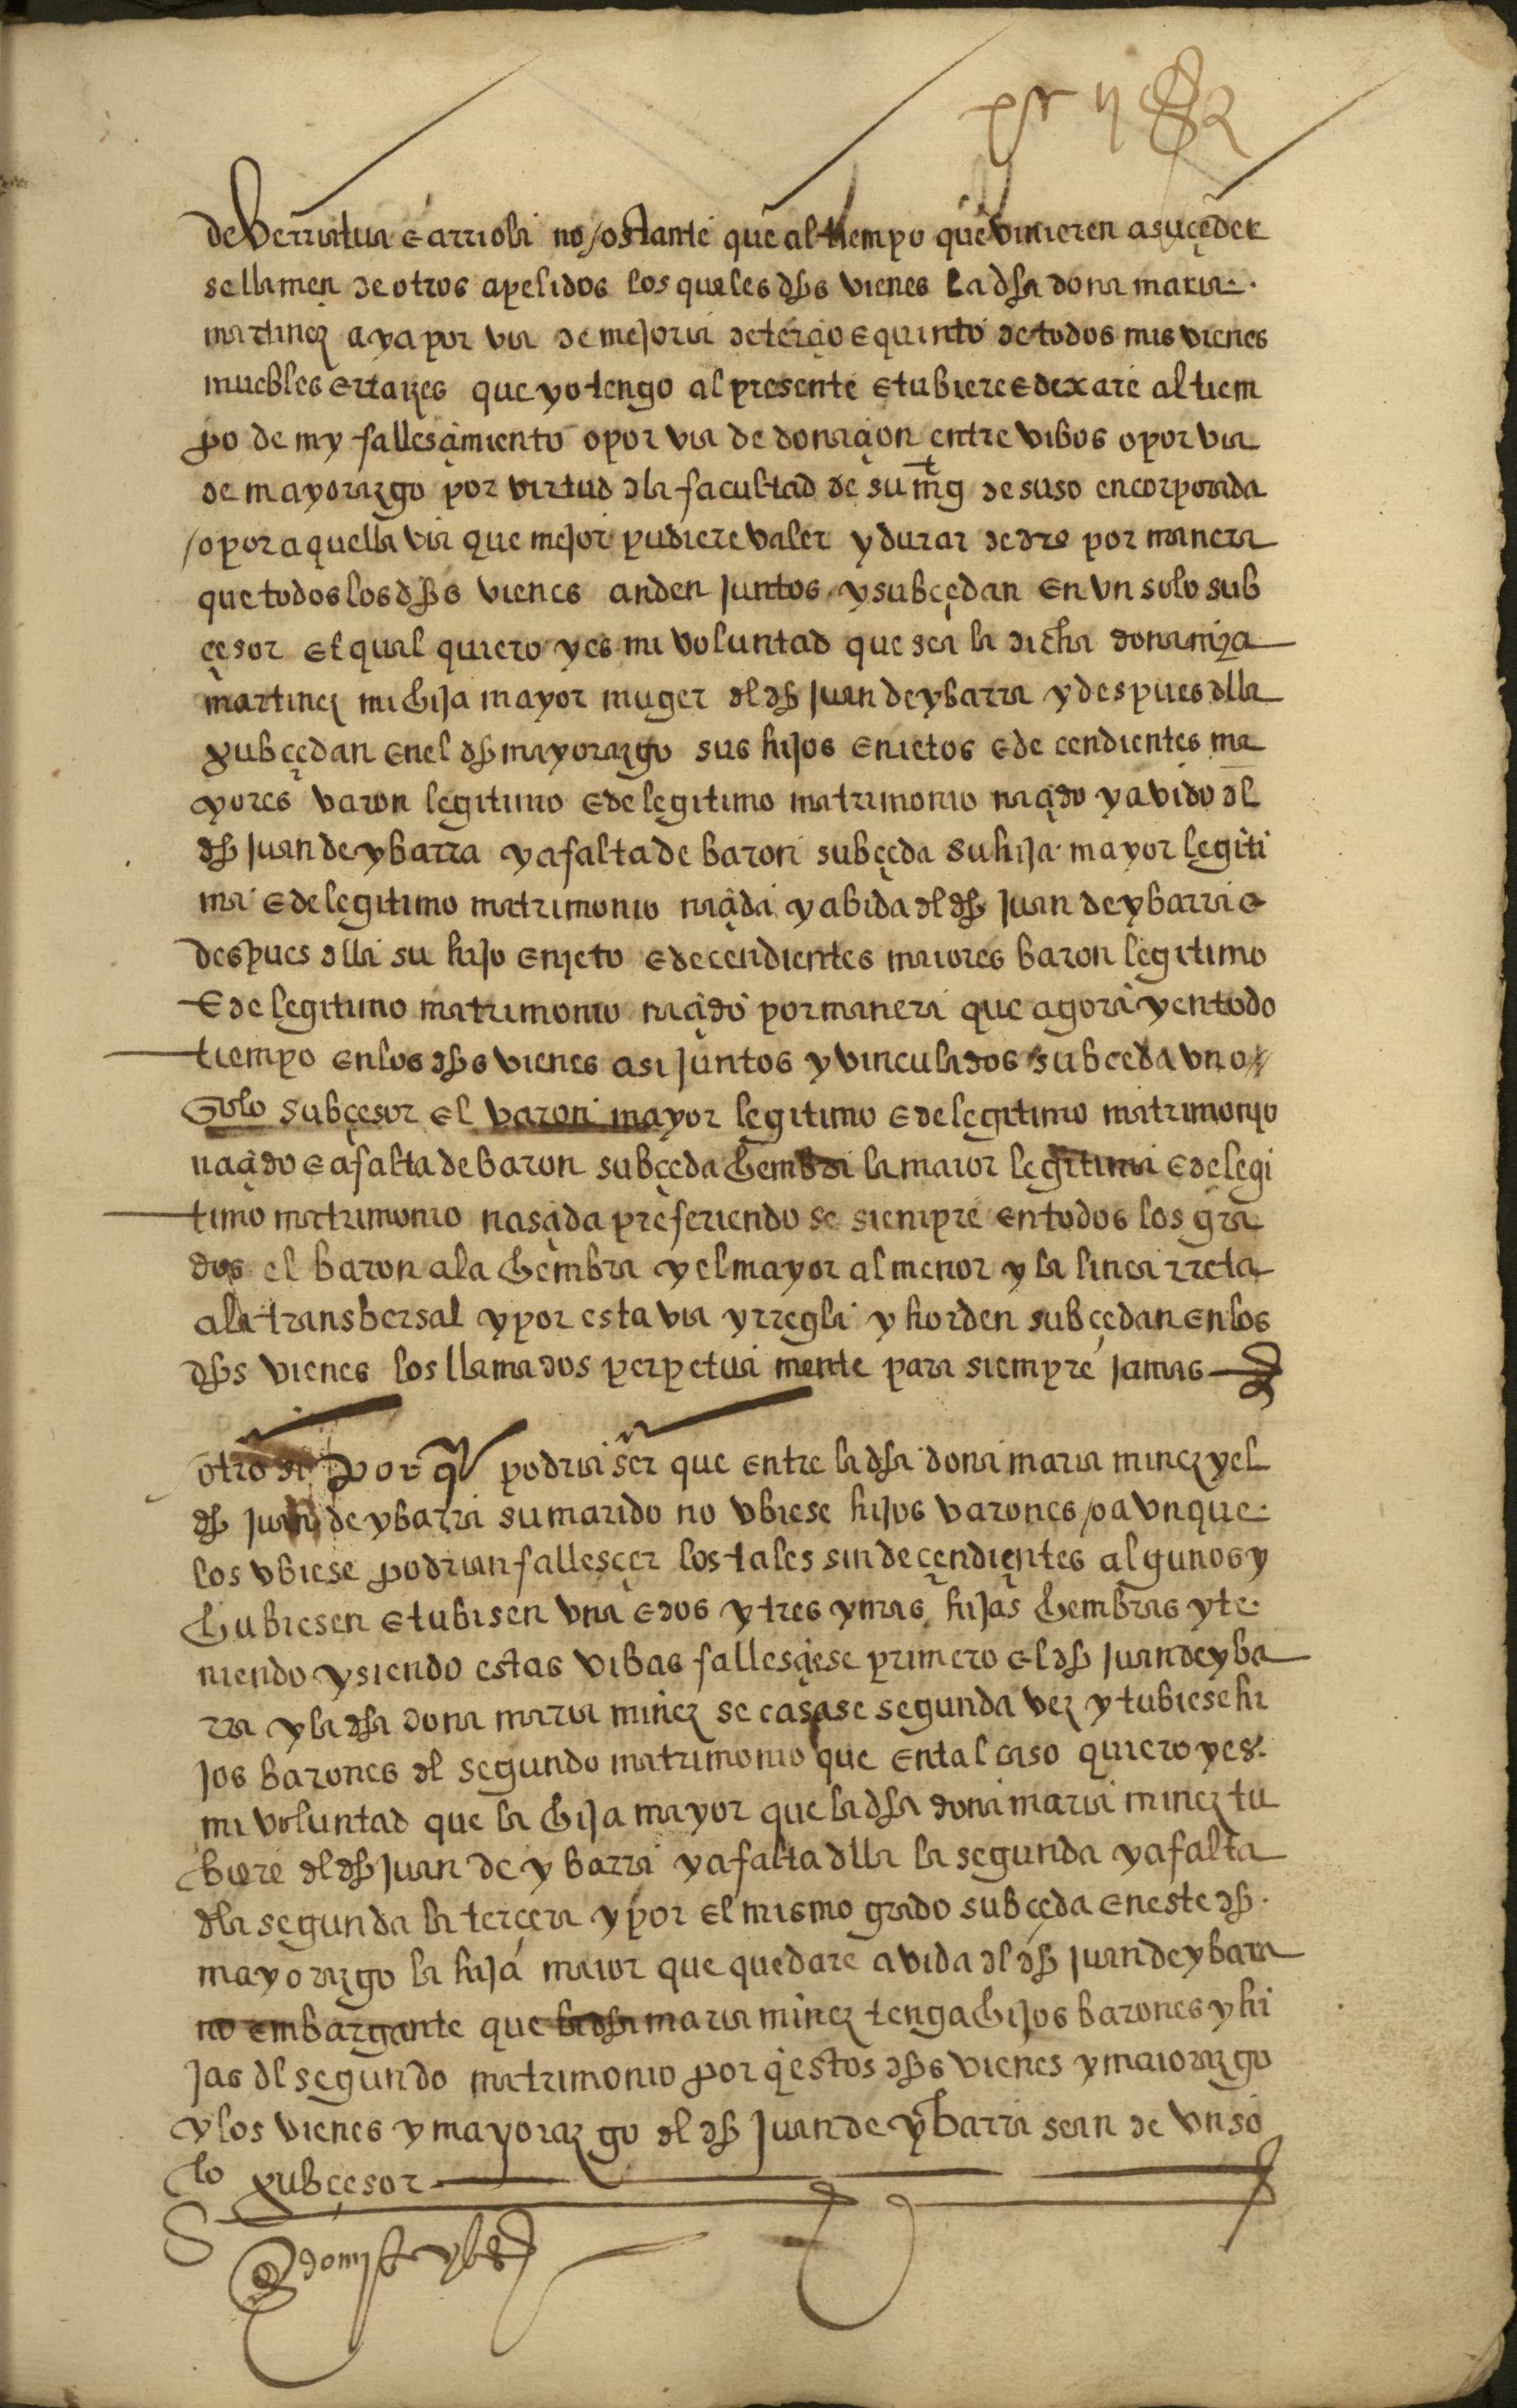 de berriatua e arriola no ostante que al tiempo que vinieren a suçeder
se llamen de otros apelidos los quales dhs vienes la dha dona maria
martinez aya por via de mejoria de terçio e quinto de todos mis vienes
muebles e rraizes que yo tengo al presente e tubiere e dexare al tiem
po de my fallesçimiento o por via de donaçion entre vibos o por via
de mayorazgo por virtud dla facultad de su mgt de suso encorporada
/o por aquella via que mejor pudiere valer y durar de dro por manera
que todos los dhs vienes anden juntos y subçedan en vn solo sub
çesor el qual quiero y es mi voluntad que sea la dicha dona mª
martinez mi hija mayor muger dl dh juan de ybarra y despues dlla
subçedan en el dh mayorazgo sus hijos e nietos e decendientes ma
yores varon legitimo e de legitimo matrimonio naçido y avido dl
dh juan de ybarra y a falta de baron subçeda su hija mayor legiti
ma e de legitimo matrimonio naçida y abida dl dh juan de ybarra e
despues dlla su hijo e njeto e decendientes maiores baron legitimo
e de legitimo matrimonio naçido por manera que agora y en todo
tiempo en los dhs vienes asi juntos y vinculados subceda vno
solo subçesor el varon mayor legitimo e de legitimo matrimonjo
naçido e a falta de baron subçeda hembra la maior legitima e de legi
timo matrimonio nasçida preferiendo se siempre en todos los gra
dos el baron a la hembra y el mayor al menor y la linea rreta
a la transbersal y por esta via y rregla y horden subçedan en los
dhs vienes los llamados perpetua mente para siempre jamas
otro si por q podria ser que entre la dha dona maria minez y el
dh juan de ybarra su marido no vbiese hijos varones /o avnque
los vbiese podrian fallesçer los tales sin deçendientes algunos y
hubiesen e tubisen vna e dos y tres y mas hijas hembras y te
niendo y siendo estas vibas fallesçiese primero el dh juan de yba
rra y la dha dona maria minez se casase segunda vez y tubiese hi
jos barones dl segundo matrimonio que en tal caso quiero y es
mi voluntad que la hija mayor que la dha dona maria minez tu
biere dl dh juan de ybarra y a falta dlla la segunda y a falta
dla segunda la terçera y por el mismo grado subçeda en este dh
mayorazgo la hija maior que quedare avida dl dh juan de ybara
no embargante que la dha maria minez tenga hijos barones y hi
jas dl segundo matrimonio por q estos dhs vienes y maiorazgo
y los vienes y mayorazgo dl dh juan de ybarra sean de vn so
lo subçesor